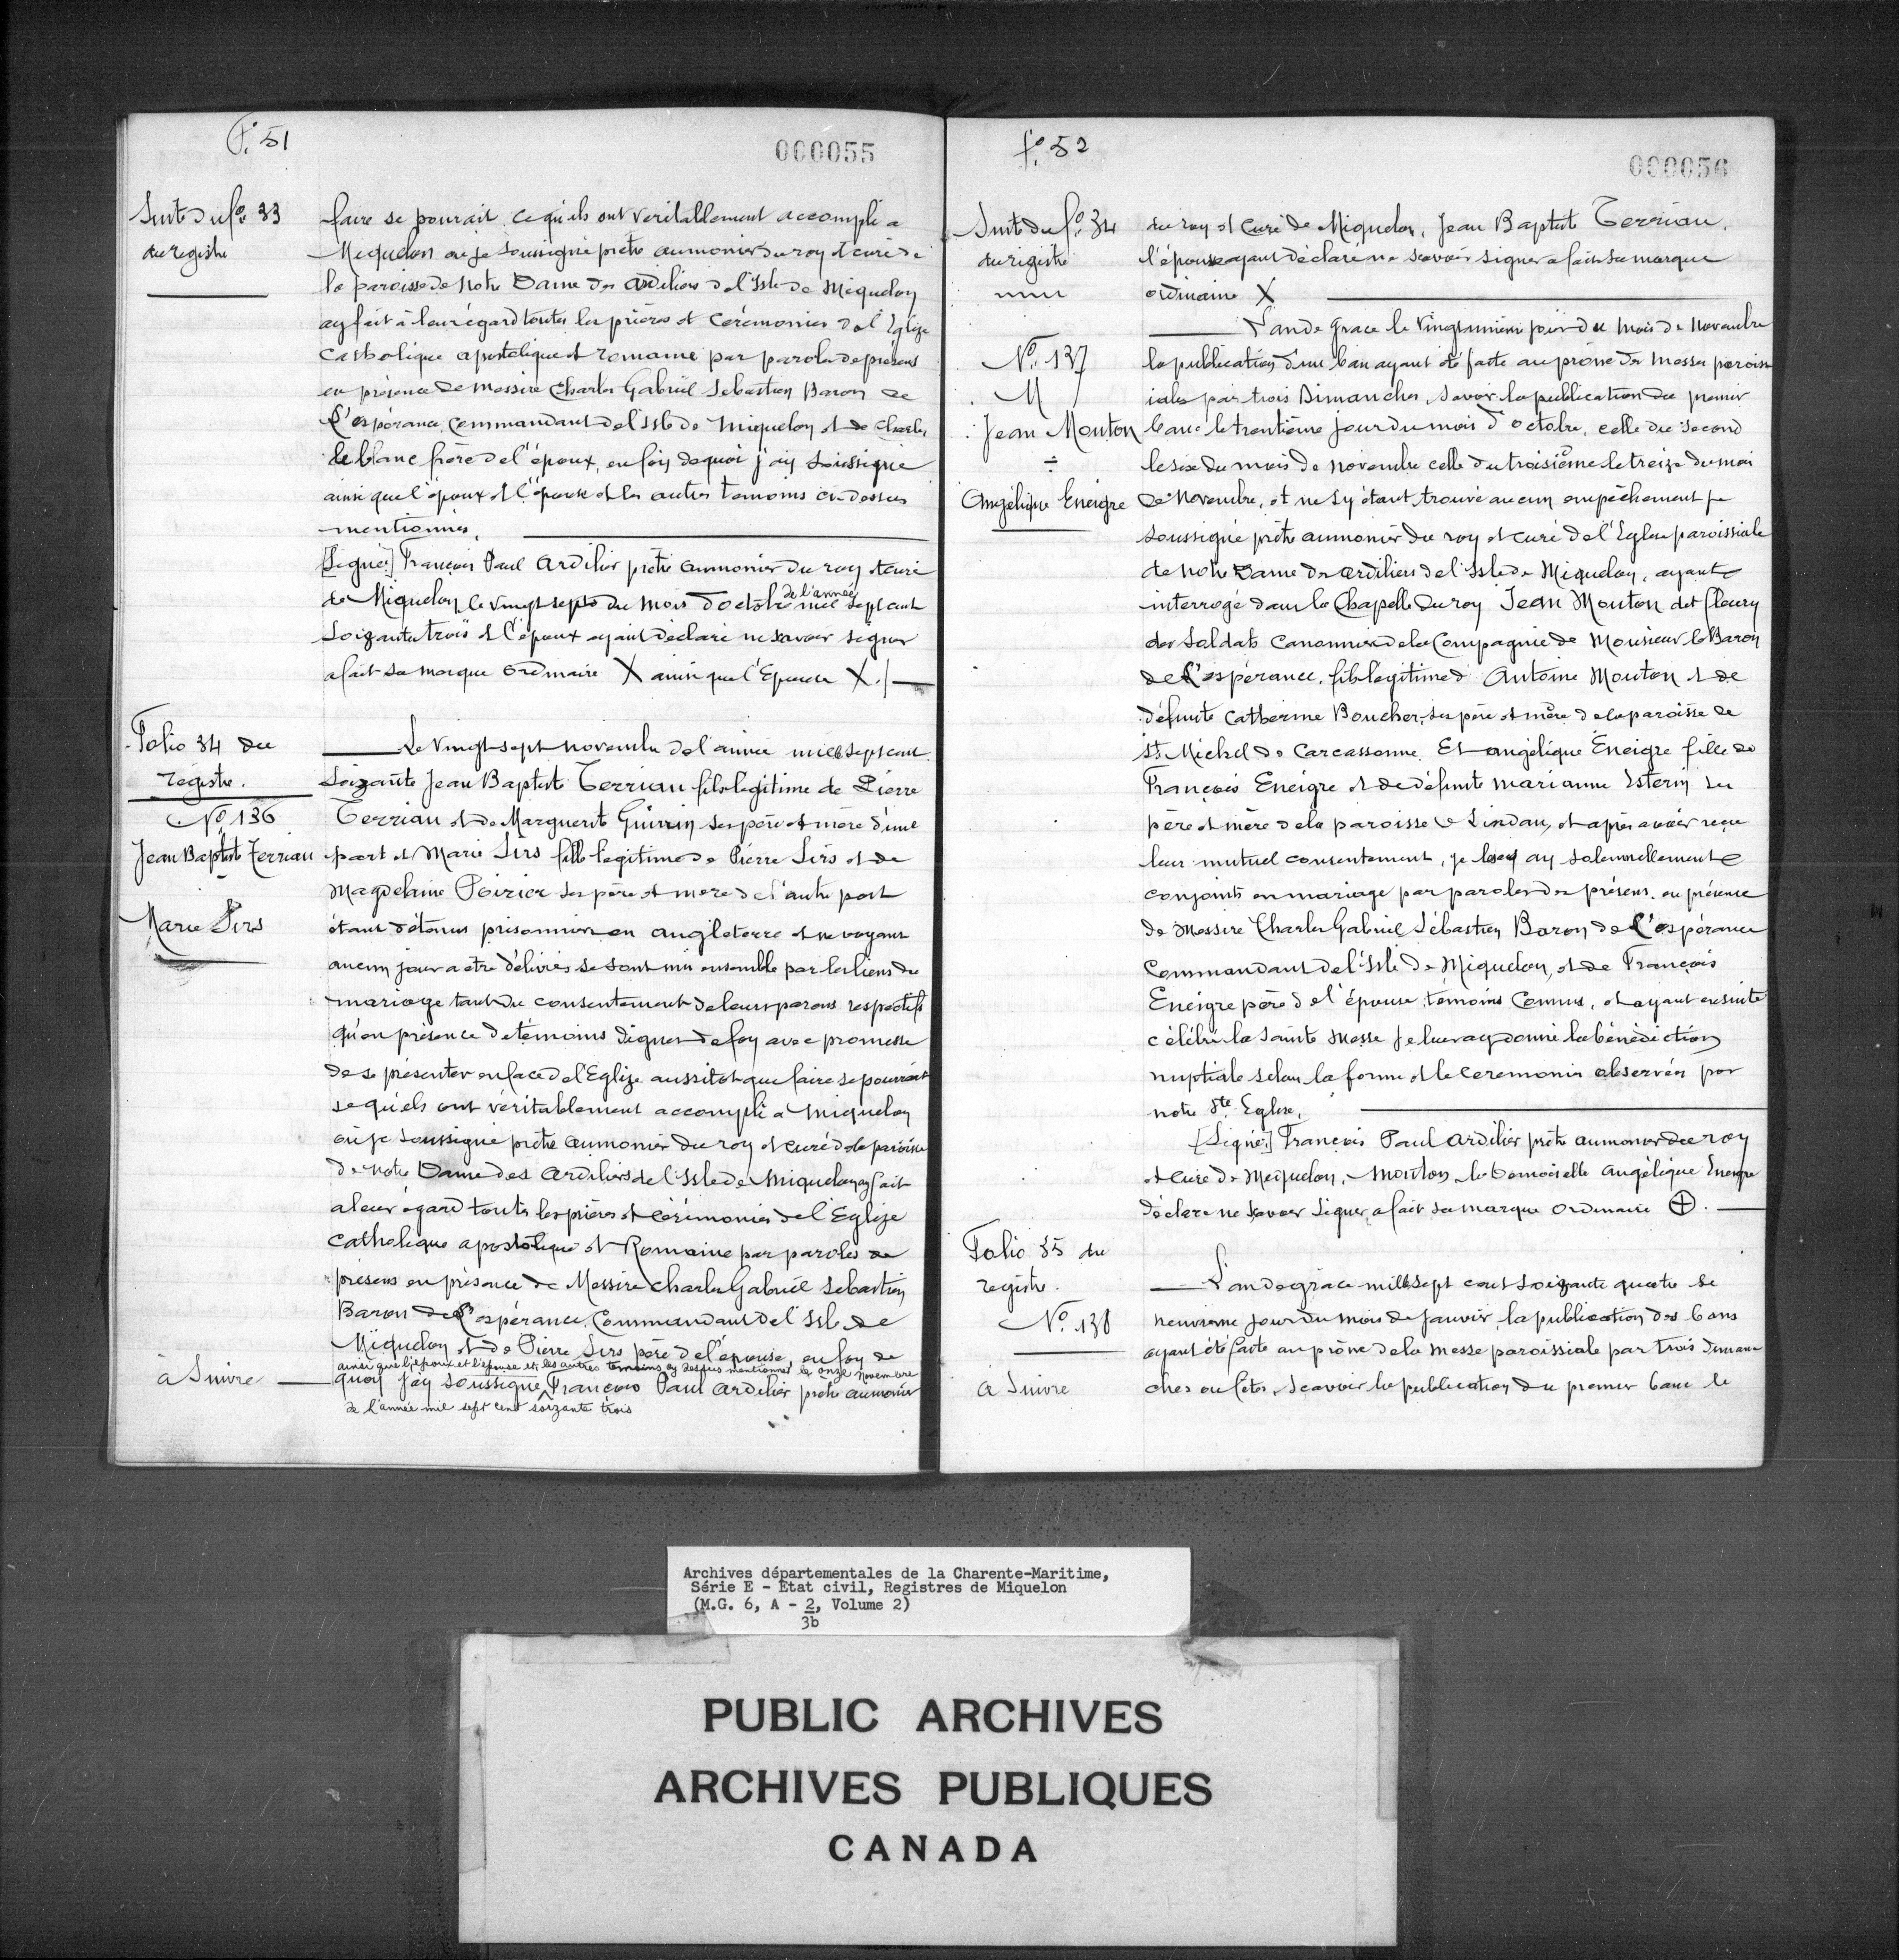 f.º 51
000055
Suite du fº. 33
du registre
faire se pourait, ce qu'ils ont veritablement accompli a
Miquelon ou je soussigné prêtre aumonier du roy et curé de
la paroisse de Notre Dame des ardiliers de l'Isle de Miquelon
ay fait à leur égard toutes les prières et cérémonies de l'Eglise
Catholique apostolique et romaine par paroles de présens
en présence de messire Charles Gabriel Sebastien Baron de
L'espérance, Commandant de l'Isle de Miquelon et de Charles
le blanc frère de l'époux, en foy de quoi j'ay soussigné
ainsi que l'époux et l'épouse et les autres temoins ci-dessus
mentionnés.
[Signé:] François Paul Ardilier prêtre aumonier du roy et curé
de Miquelon le vingt sept du mois d'octobre de l'année mil sept cent
soixante trois et l'époux ayant déclaré ne savoir signer
a fait sa marque ordinaire X ainsi que l'Epouse X./
Folio 34 du
registre.
Nº 136
Jean Baptist Terriau
Marie Sirs
Le vingt sept novembre de l'année mille sept cent
soixante Jean Baptist Terriau fils legitime de Pierre
Terriau et de Marguerit Guirin ses père et mère d'une
part et Marie Sirs fille legitime de Pierre Sirs et de
Magdelaine Poirier ses père et mere de l'autre part
étant détenus prisonnier en angleterre et ne voyant
aucun jour a etre délivrés se sont mis ensemble par les liens du
mariage tant du consentement de leurs parens respectifs
qu'en présence de témoins dignes de foy avec promesse
de se présenter en face de l'Eglize aussitot que faire se pourroit
se qu'els ont véritablement accompli a Miquelon
où je soussigné prêtre aumonier du roy et curé de la paroisse
de Notre Dame des Ardiliers de l'Isle de Miquelon ay fait
a leur égard toutes les prières et cérémonies de l'Eglize
Catholique apostolique et Romaine par paroles de
présens en présence de Messire Charles Gabriel Sebastien
Baron de L'espérance, Commandant de l'Isle de
Miquelon et de Pierre Sirs père de l'épouse, en foy de
ainsi que l'époux et l'épouse et les autres temoins cy dessus mentionnés le onze novembre
quoy j'ay soussigné François Paul Ardilier prêtre aumonier
de l'année mil sept cent soixante trois
à Suivre
fº. 52
000056
Suite du fº. 34
du registre
du roy et curé de Miquelon, Jean Baptist Terriau,
l'épouse ayant déclaré ne scavoir signer a fait sa marque
ordinaire X
Nº. 137
M
Jean Mouton
÷
Angélique Eneigre
L'an de grace le vingt unième jour du mois de novembre
la publication d'un ban ayant été faite au prône des messes paroiss
iales par trois Dimanches, savoir la publication du premier
banc le trentième jour du mois d'octobre, celle du second
le six du mois de novembre celle du troisième le treize du mois
de novembre, et ne s'y étant trouvé aucun empêchement je
soussigné prêtre aumonier du roy et curé de l'Eglise paroissiale
de notre Dame des ardiliers de l'Isle de Miquelon, ayant
interrogé dans la Chapelle du roy Jean Mouton dit fleury
des soldats canonniers de la Compagnie de Monsieur le Baron
de L'espérance, fils legitime d'Antoine Mouton et de
défunte Catherine Boucher, ses père et mère de la paroisse de
St. Michel de Carcassonne. Et angélique Eneigre fille de
François Eneigre et de défunte marianne Isterin ses
père et mère de la paroisse de Lindau, et après avoir reçu
leur mutuel consentement, je les ay solennellement
conjoints en mariage par paroles de présens, en présence
de Messire Charles Gabriel Sébastien Baron de L'espérance
Commandant de l'Isle de Miquelon, et de François
Eneigre père de l'épouse témoins connus, et ayant ensuite
célébré la sainte Messe je leur ay donné la bénédiction
nuptiale selon la forme et les ceremonies observées par
notre Ste. Eglise.
[Signé:] François Paul Ardilier prêtre aumonier du roy
et curé de Meiquelon, Mouton, la Demoiselle Angélique Eneigre
déclare ne savoir signer a fait sa marque ordinaire ⊕.
Folio 35 du
registre.
Nº. 138
L'an de grace mille sept cent soixante quatre le
neuvieme jour du mois de janvier, la publication des bans
ayant été faite au prône de la messe paroissiale par trois diman
ches ou fetes, scavoir la publication du premier banc le
a Suivre
Archives départementales de la Charente-Maritime,
Série E - État civil, Registres de Miquelon
(M.G. 6, A - 2, Volume 2)
3b
PUBLIC ARCHIVES
ARCHIVES PUBLIQUES
CANADA